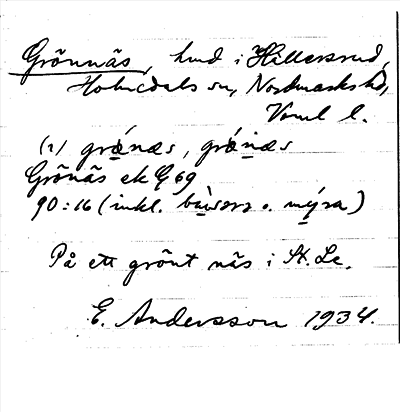 Grönnäs, hmd i Hillersrud,
Holmedals sn, Nordmarks hd,
Vrml l.
(1) grǿnæs, grǿnæs
Grönäs ek G 69
90:16 (inkl. o. mýra)
På ett grönt näs i St. Le.
E. Andersson 1934.